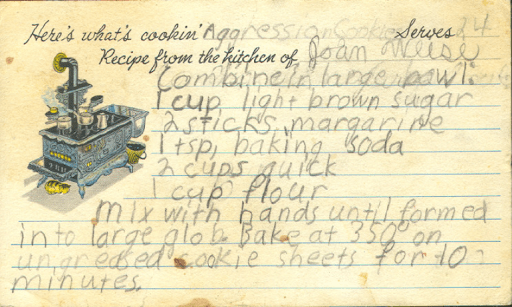 Here's what's cookin' Aggression Cookies Serves 24
Recipe from the kitchen of Joan Weise
Combine in large bowl:
1 cup light brown sugar
2 sticks margarine
1 tsp. baking soda
2 cups quick
1 cup flour
Mix with hands until formed
into large glob. Bake at 350° on
ungreased cookie sheets for 10
minutes.